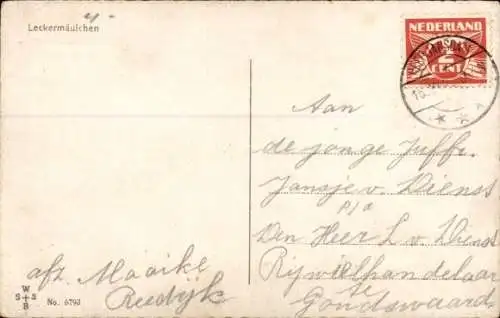 Leckermäulchen
NEDERLAND
2
CENT
Aan
de jonge Juffr.
Jansje v. Dienst
p/a
Den Heer L v. Dienst
Rijwielhandelaar
te
Goudswaard
afz. Maaike
Reedijk
W
S S
B
No. 6793